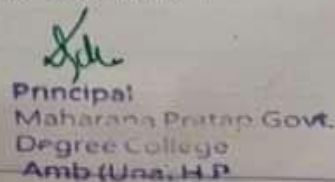 Principal
Maharana Pratap Govt.
Degree College
Amb (Una) H.P